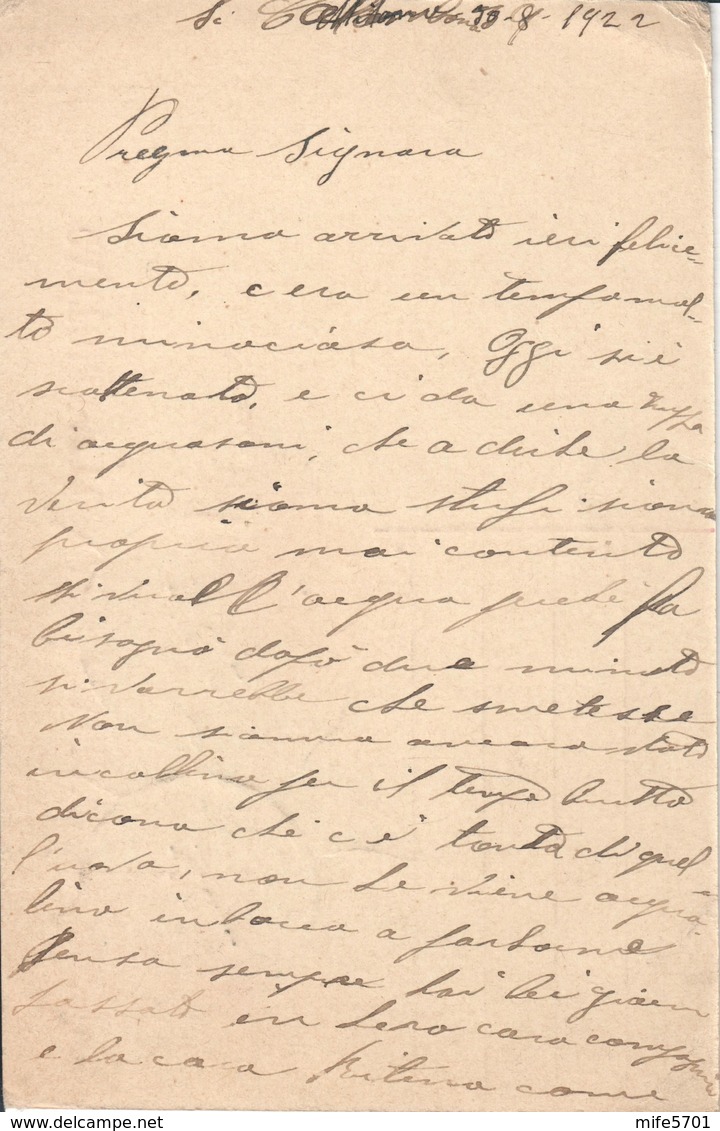 30-8-1922
Pregma Signora
Siamo arrivati ieri felice=
mente, c'era un tempo mol=
to minacioso, Oggi si è
scattenato, e ci da una
di acquasoni, che a dirle la
verità siamo stufi siamo
proprio mai contenti
si vuol l'acqua poi la
bisogno dopo due minuti
si vorrebbe che smetesse
Non siamo ancora stati
in collina per il tempo brutto
dicono che c'è tanta di quel=
l'uva, non le viene acquo=
lino in bocca a parlarne
Penso sempre hai bei giorni
passati in loro cara compagnia
e la cara come
mife5701